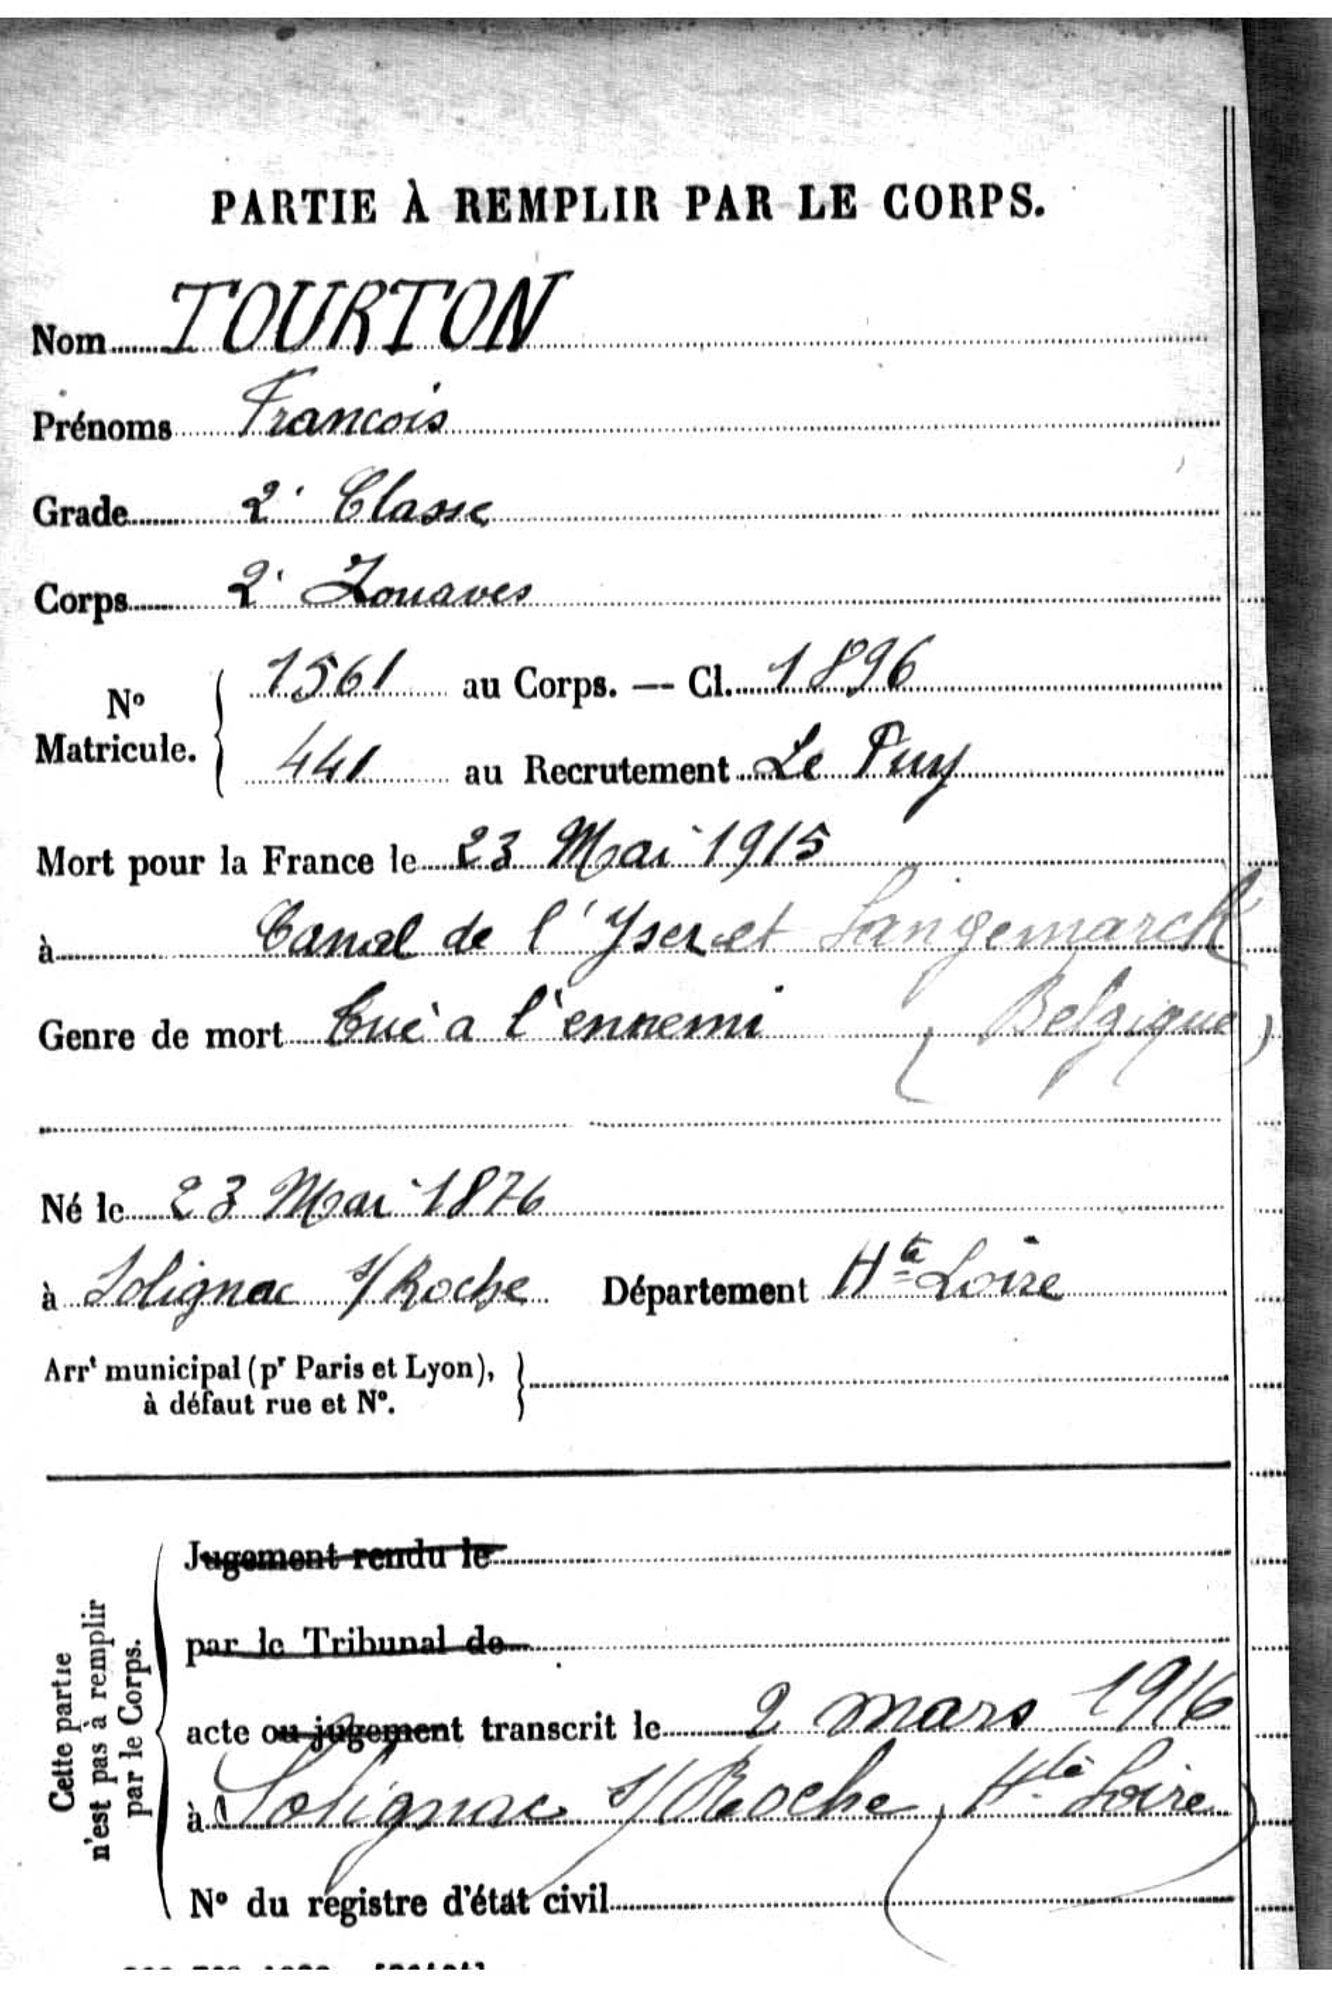 PARTIE À REMPLIR PAR LE CORPS.
Nom TOURTON
Prénoms Francois
Grade 2e Classe
Corps 2e Zouaves
No Matricule. { 1561 au Corps. — Cl. 1896
441 au Recrutement Le Puy
Mort pour la France le 23 Mai 1915
à Canal de l'Yser et Langemarck
Genre de mort tué a l'ennemi (Belgique)
Né le 23 Mai 1876
à Solignac s/Roche Département Hte Loire
Arrt municipal (pr Paris et Lyon),
à défaut rue et No.
Cette partie
n'est pas à remplir
par le Corps.
Jugement rendu le
par le Tribunal de
acte ou jugement transcrit le 2 mars 1916
à Solignac s/Roche (Hte Loire)
No du registre d'état civil